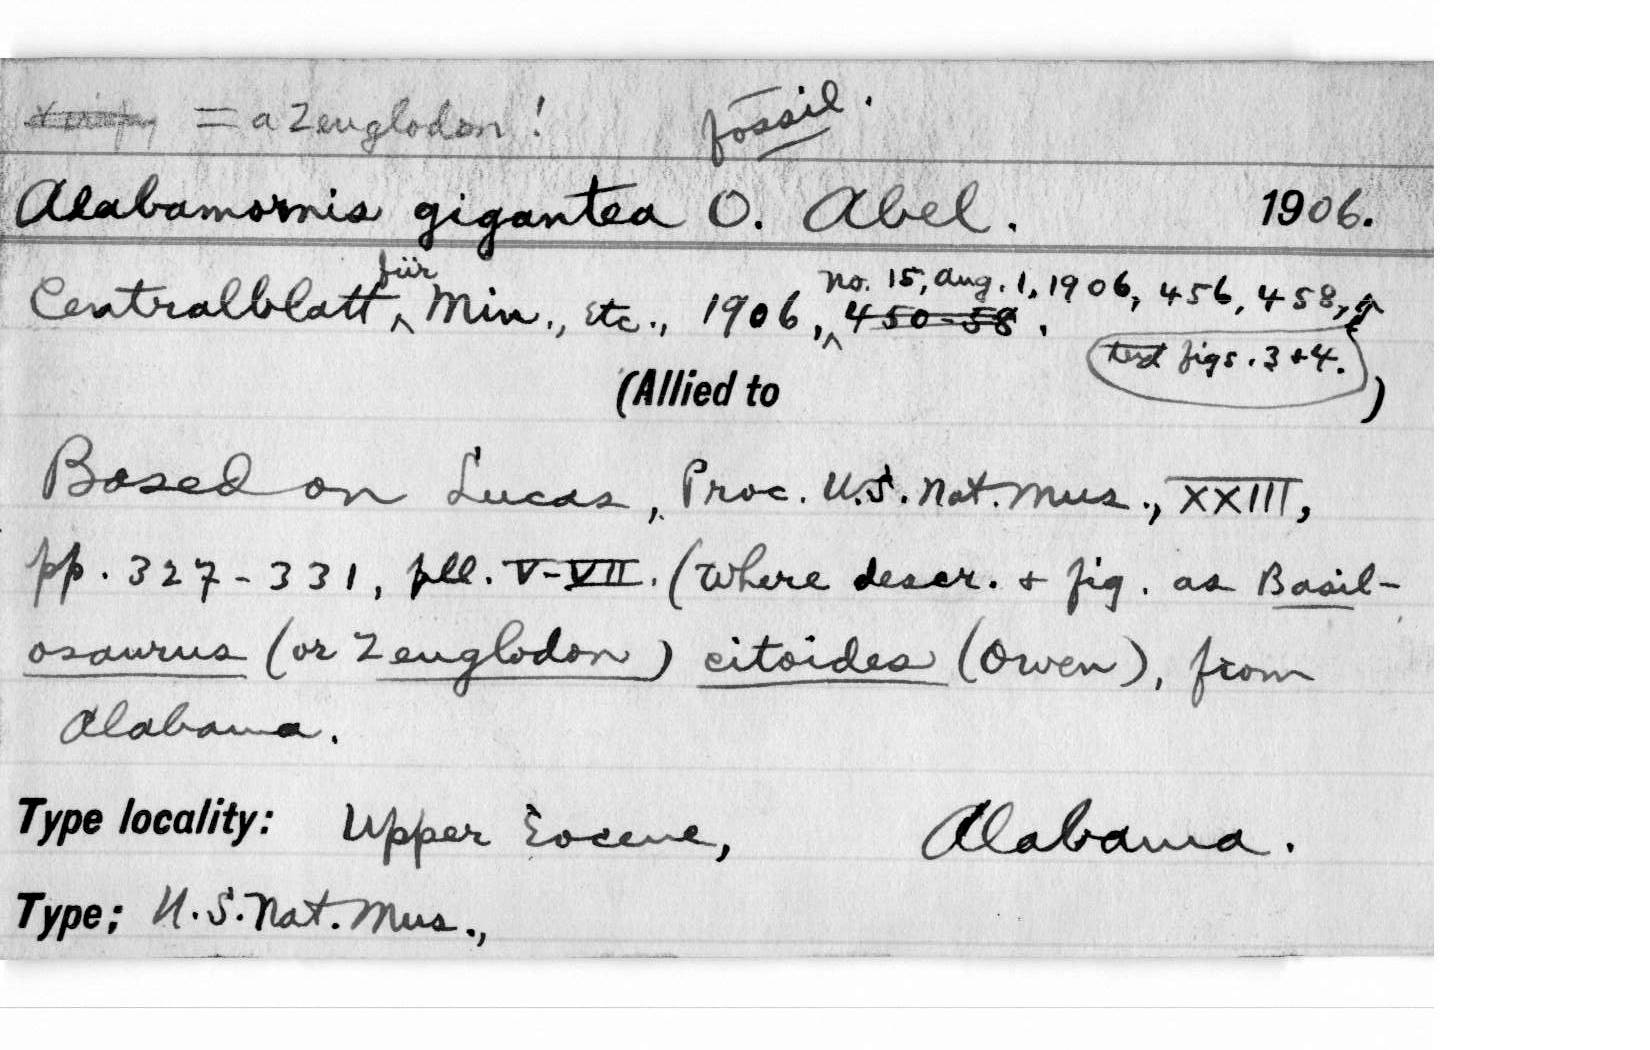 = a Zeuglodon! fossil.
Alabamornis gigantea O. Abel. 1906.
Centralblatt für Min., etc., 1906, no. 15, Aug. 1, 1906, 456, 458, 450-58.
text figs. 3 + 4.
(Allied to )
Based on Lucas, Proc. U.S. Nat. Mus., XXIII,
pp. 327-331, pll. V-VII. (where descr. + fig. as Basil-
osaurus (or Zeuglodon) citoides (Owen), from
Alabama.
Type locality: Upper Eocene, Alabama.
Type; U.S. Nat. Mus.,